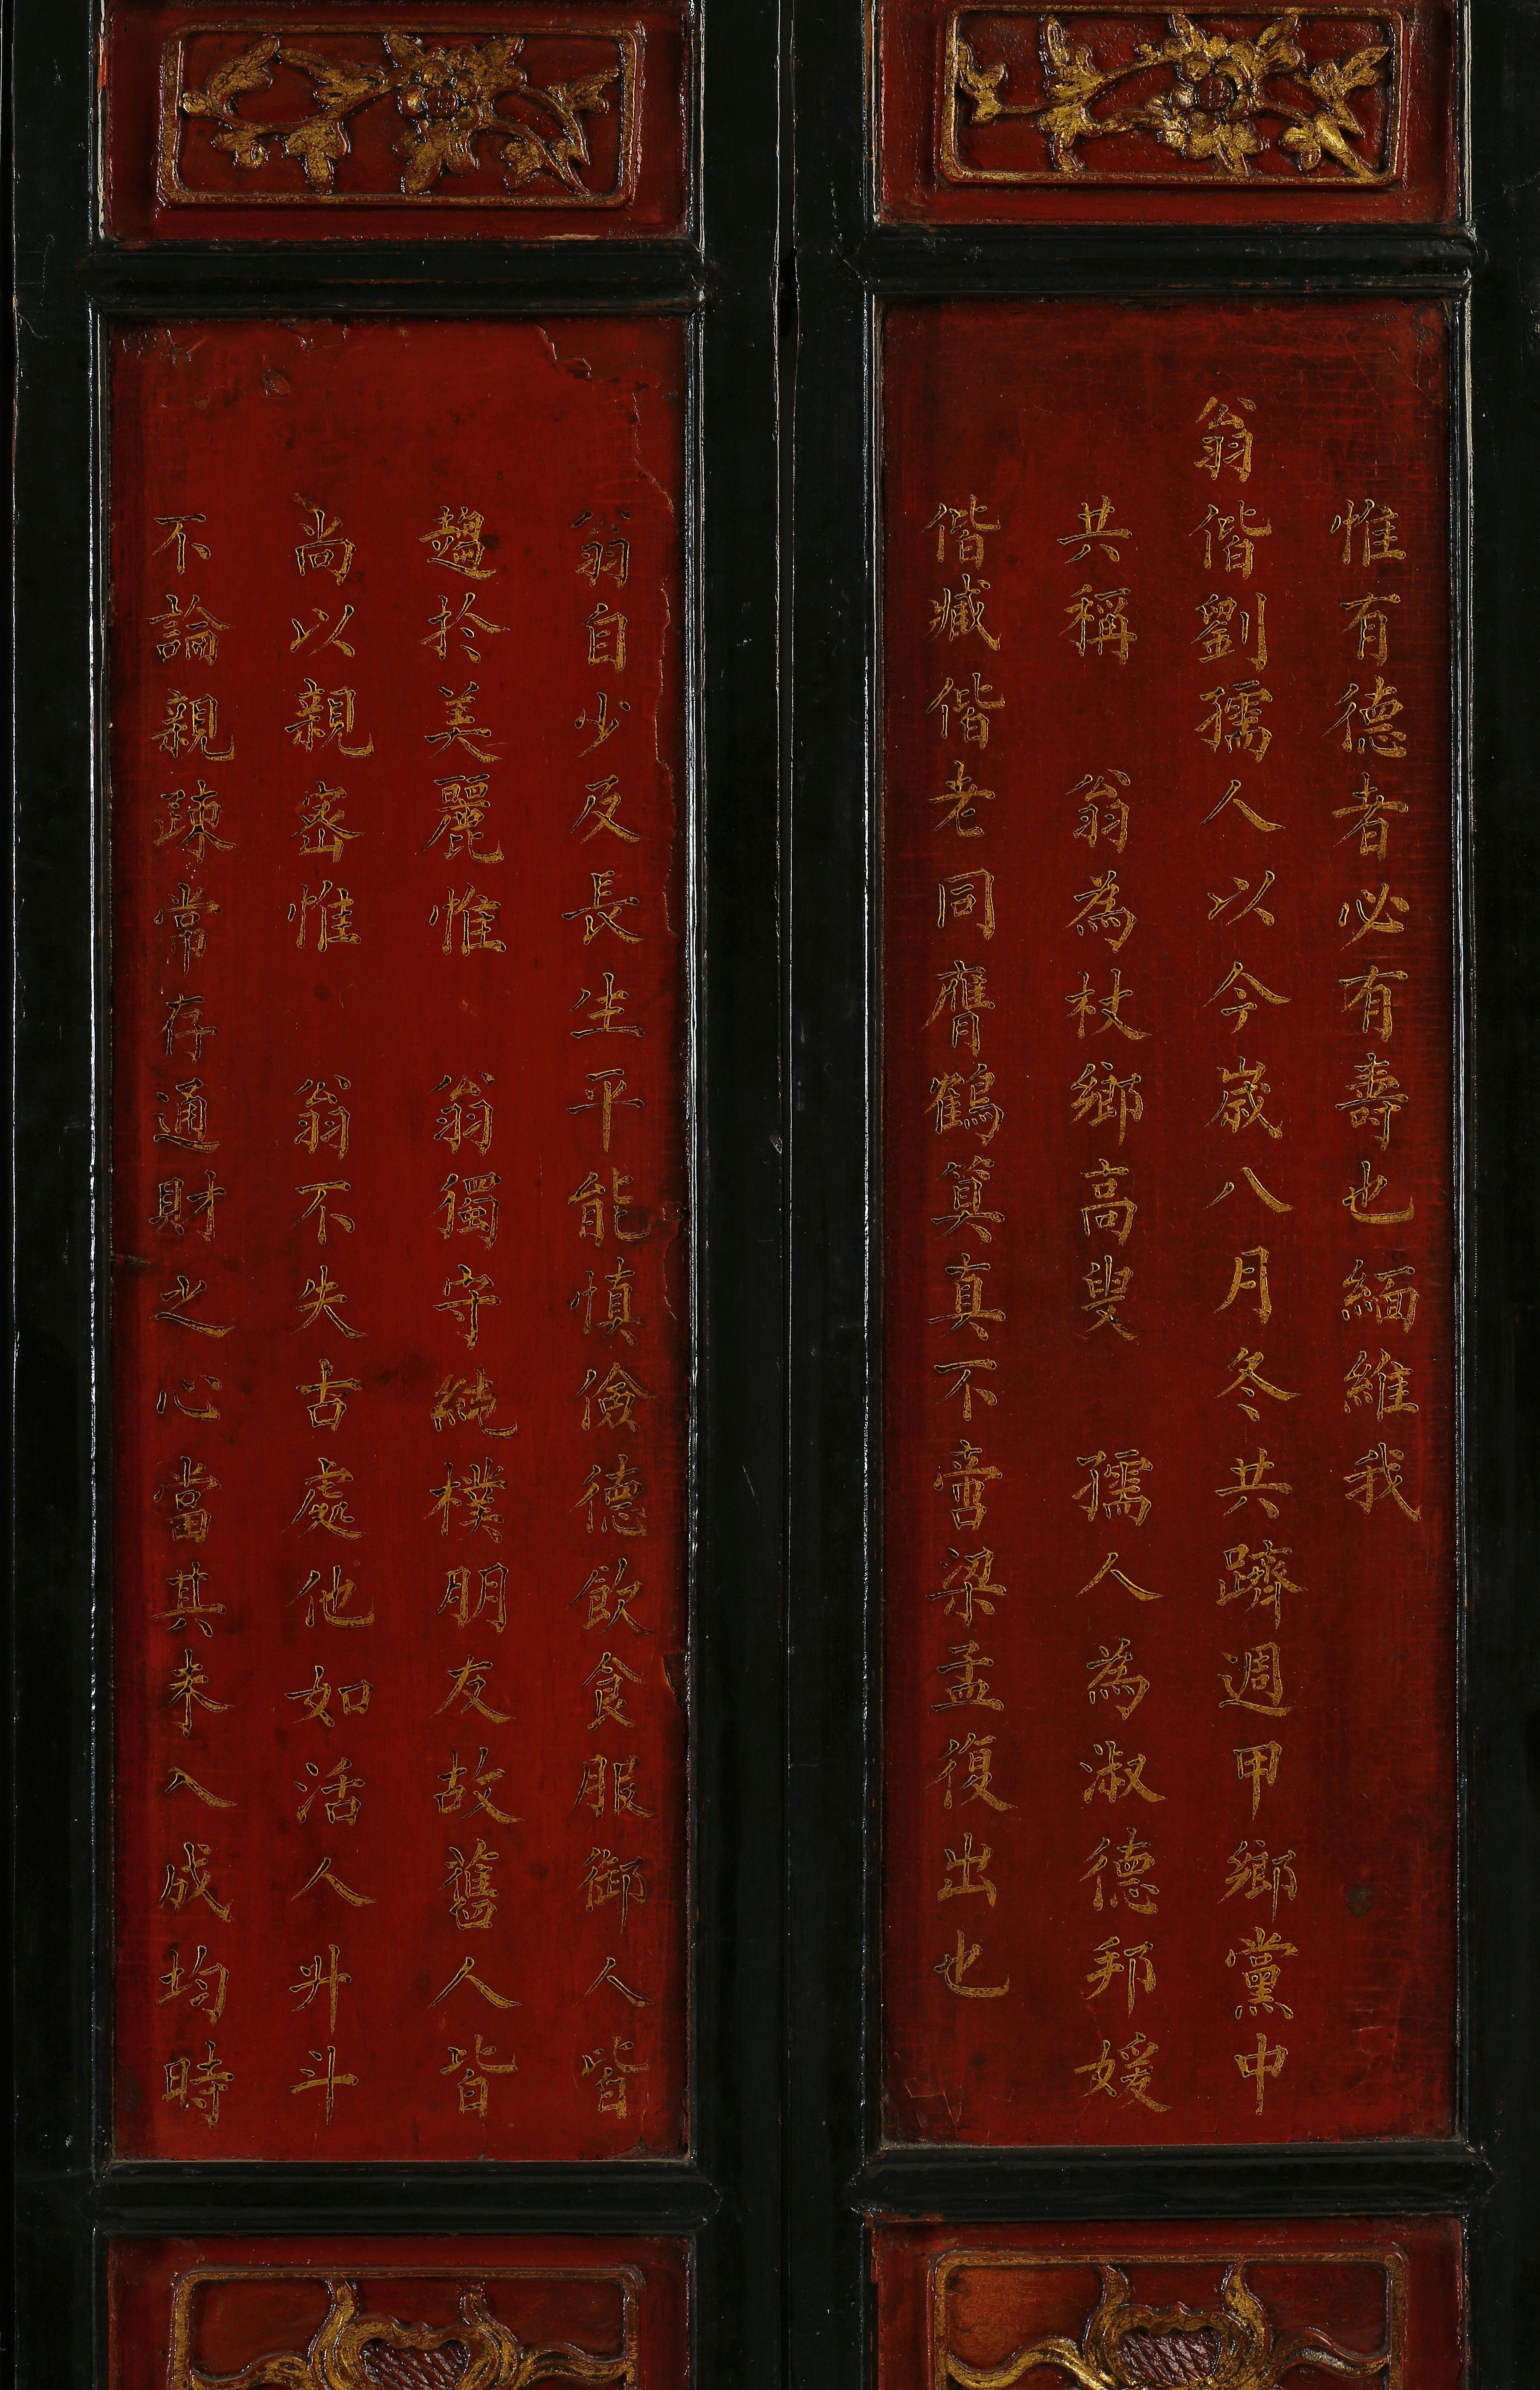 惟有德者必有壽也緬維我
翁偕劉孺人以今歲八月冬共躋週甲鄉黨中
共稱　翁為杖鄉高叟　孺人為淑德邦媛
偕臧偕老同膺鶴筭真不啻梁孟復出也
翁自少及長生平能慎儉德飲食服御人皆
趨於美麗惟　翁獨守純樸朋友故舊人皆
尚以親密惟　翁不失古處他如活人升斗
不論親疎常存通財之心當其未入成均時